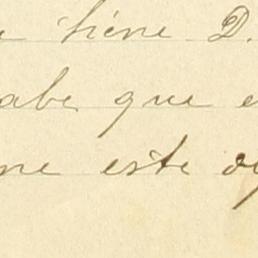 tiene D.
abe que e
ne este